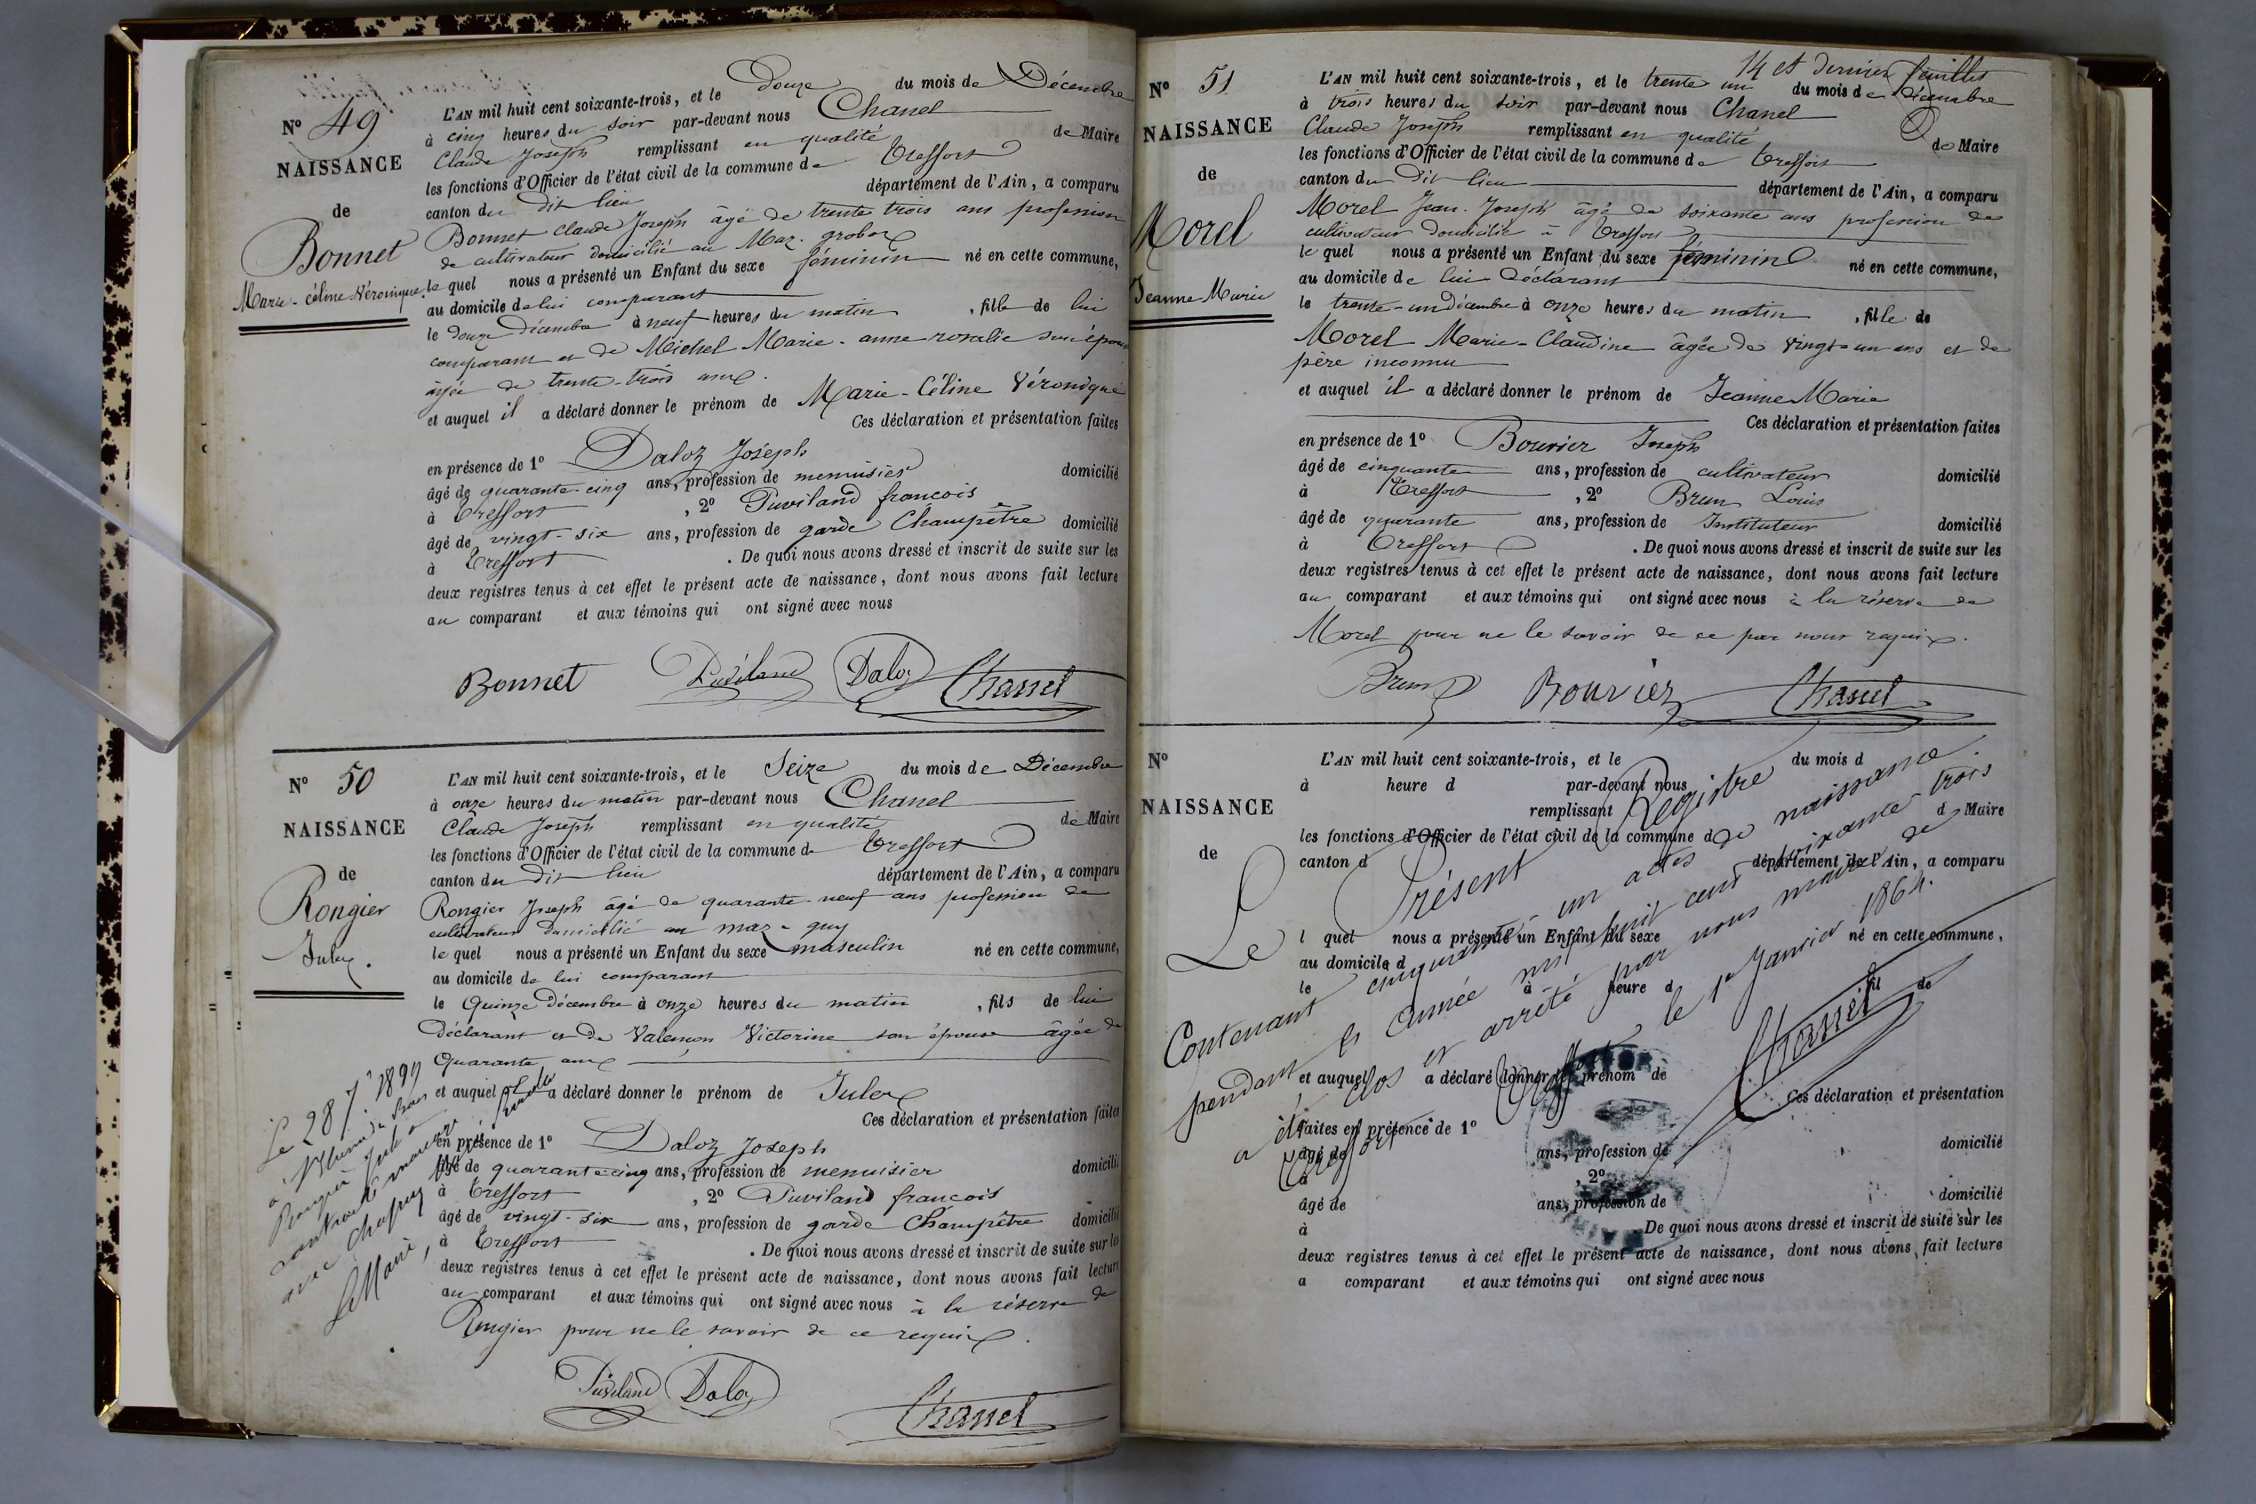 N° 49
NAISSANCE
de
Bonnet
Marie-Céline Véronique
L'AN mil huit cent soixante-trois, et le Douze du mois de Décembre
à cinq heures du soir par-devant nous Chanel
Claude Joseph remplissant en qualité de Maire
les fonctions d'Officier de l'état civil de la commune de Treffort
canton du dit lieu département de l'Ain, a comparu
Bonnet Claude Joseph âgé de trente trois ans profession
de cultivateur domicilié au Maz. groboz
le quel nous a présenté un Enfant du sexe féminin né en cette commune,
au domicile de lui comparant
le douze Décembre à neuf heures du matin, fille de lui
comparant et de Michel Marie-anne rosalie son épouse
âgée de trente-trois ans.
et auquel il a déclaré donner le prénom de Marie-Céline Véronique
Ces déclaration et présentation faites
en présence de 1° Daloz Joseph
âgé de quarante-cinq ans, profession de menuisier domicilié
à Treffort, 2° Puviland françois
âgé de vingt-six ans, profession de garde Champêtre domicilié
à Treffort. De quoi nous avons dressé et inscrit de suite sur les
deux registres tenus à cet effet le présent acte de naissance, dont nous avons fait lecture
au comparant et aux témoins qui ont signé avec nous
Bonnet Puviland Daloz Chanel
N° 50
NAISSANCE
de
Rongier
Jules.
L'AN mil huit cent soixante-trois, et le Seize du mois de Décembre
à onze heures du matin par-devant nous Chanel
Claude Joseph remplissant en qualité de Maire
les fonctions d'Officier de l'état civil de la commune de Treffort
canton du dit lieu département de l'Ain, a comparu
Rongier Joseph âgé de quarante-neuf ans profession de
cultivateur domicilié au maz-guy
le quel nous a présenté un Enfant du sexe masculin né en cette commune,
au domicile de lui comparant
le Quinze Décembre à onze heures du matin, fils de lui
Déclarant et de Valenson Victorine son épouse âgée de
Quarante ans
et auquel il a déclaré donner le prénom de Jules
Ces déclaration et présentation faites
en présence de 1° Daloz Joseph
âgé de quarante-cinq ans, profession de menuisier domicilié
à Treffort, 2° Puviland françois
âgé de vingt-six ans, profession de garde Champêtre domicilié
à Treffort. De quoi nous avons dressé et inscrit de suite sur les
deux registres tenus à cet effet le présent acte de naissance, dont nous avons fait lecture
au comparant et aux témoins qui ont signé avec nous à la réserve de
Rongier pour ne le savoir de ce requis.
Puviland Daloz Chanel
Le 28 7bre 1899
Rongier Jules a
contracté mariage
avec Chapuy
Le Maire,
14 et dernier feuillet
N° 51
NAISSANCE
de
Morel
Jeanne Marie
L'AN mil huit cent soixante-trois, et le trente un du mois de Décembre
à trois heures du soir par-devant nous Chanel
Claude Joseph remplissant en qualité de Maire
les fonctions d'Officier de l'état civil de la commune de Treffort
canton du dit lieu département de l'Ain, a comparu
Morel Jean-Joseph âgé de soixante ans profession de
cultivateur domicilié à Treffort
le quel nous a présenté un Enfant du sexe féminin né en cette commune,
au domicile de lui déclarant
le trente-un décembre à onze heures du matin, fille de
Morel Marie-Claudine âgée de vingt-un ans et de
père inconnu
et auquel il a déclaré donner le prénom de Jeanne Marie
Ces déclaration et présentation faites
en présence de 1° Bouvier Joseph
âgé de cinquante ans, profession de cultivateur domicilié
à Treffort, 2° Brun Louis
âgé de quarante ans, profession de Instituteur domicilié
à Treffort. De quoi nous avons dressé et inscrit de suite sur les
deux registres tenus à cet effet le présent acte de naissance, dont nous avons fait lecture
au comparant et aux témoins qui ont signé avec nous à la réserve de
Morel pour ne le savoir de ce par nous requis.
Brun Bouvier Chanel
N°
NAISSANCE
de
L'AN mil huit cent soixante-trois, et le du mois d
à heure d par-devant nous
remplissant d Maire
les fonctions d'Officier de l'état civil de la commune d
canton d département de l'Ain, a comparu
l quel nous a présenté un Enfant du sexe né en cette commune,
au domicile d
le à heure d fil de
et auquel a déclaré donner le prénom de
Ces déclaration et présentation
faites en présence de 1°
âgé de ans, profession de domicilié
à, 2°
âgé de ans, profession de domicilié
à De quoi nous avons dressé et inscrit de suite sur les
deux registres tenus à cet effet le présent acte de naissance, dont nous avons fait lecture
a comparant et aux témoins qui ont signé avec nous
Le Présent Registre
Contenant cinquante un actes de naissance
pendant la Année mil huit cent soixante-trois
a été clos et arrêté par nous maire de
Treffort le 1er Janvier 1864.
Chanel